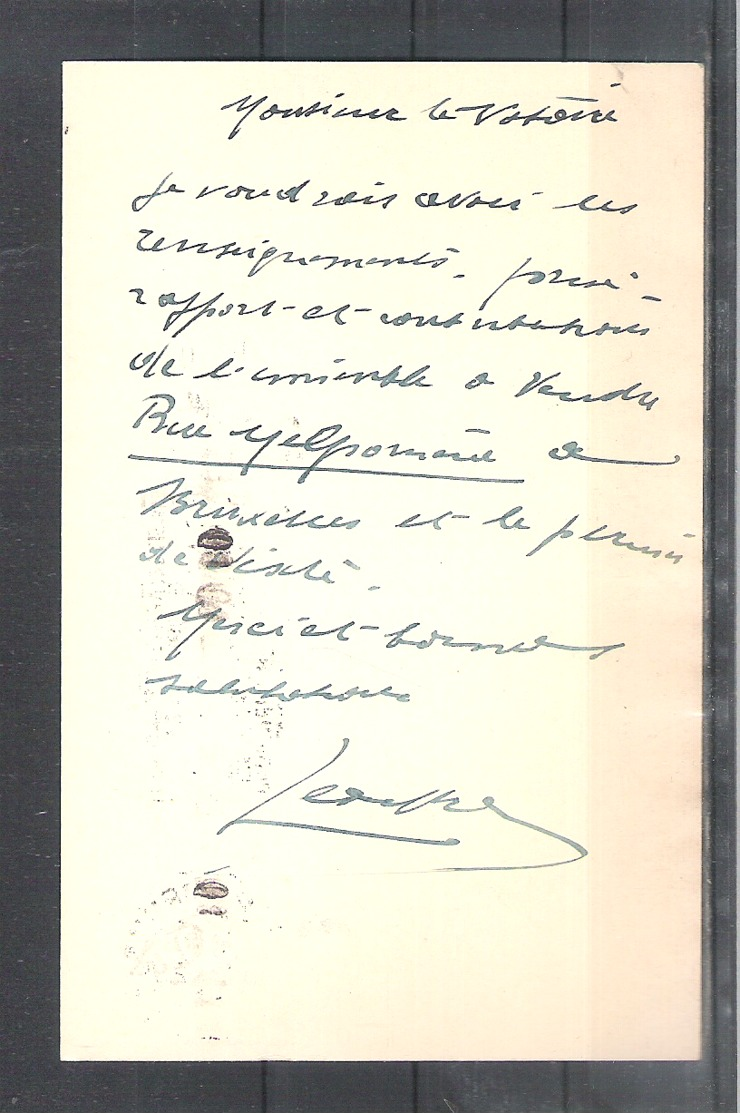 Monsieur le Notaire
Je voudrais avoir les
renseignements, prix
rapport et contributions
de l'immeuble à vendre
Rue Melpomène à
Bruxelles et le permis
de visite.
Merci et bonnes
salutations